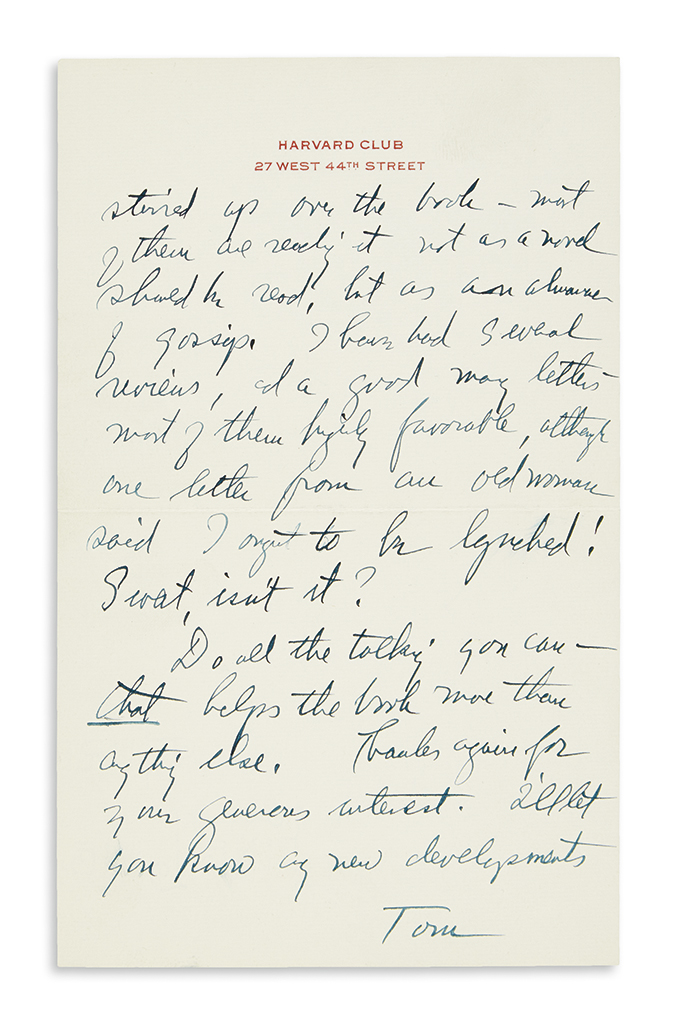 HARVARD CLUB
27 WEST 44TH STREET
stirred up over the book — most
of them are reading it not as a novel
should be read, but as an almanac
of gossip. I have had several
reviews, and a good many letters
most of them highly favorable, although
one letter from an old woman
said I ought to be lynched!
Sweet, isn't it?
Do all the talking you can —
that helps the book more than
anything else. Thanks again for
your generous interest. I'll let
you know any new developments
Tom